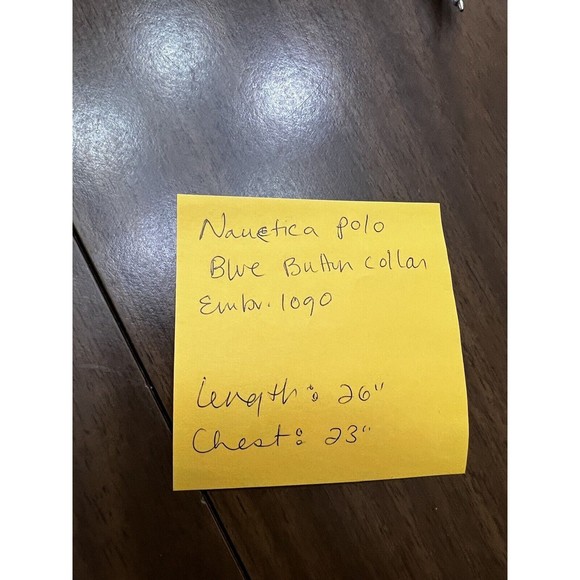 Nautica polo
Blue Button collar
Embr. logo
Length: 26"
Chest: 23"